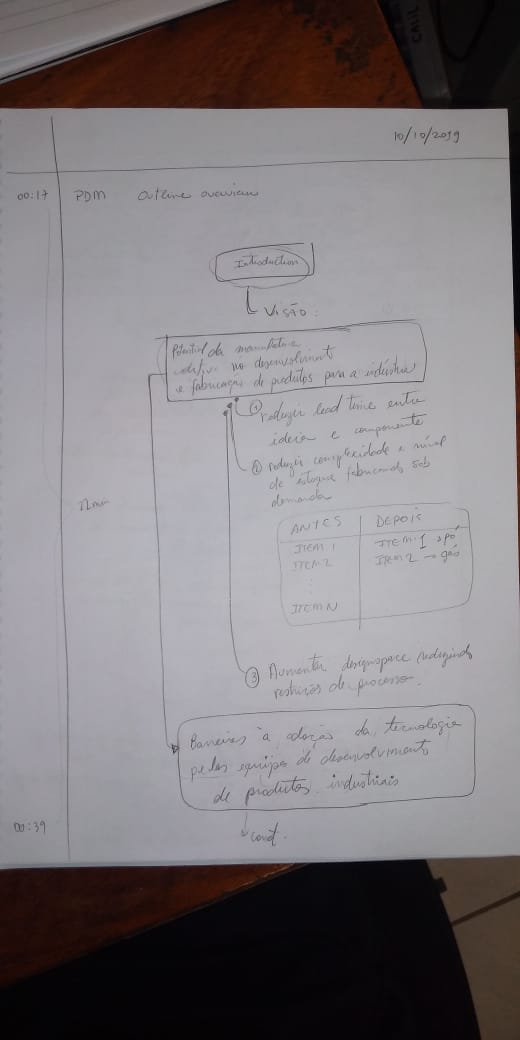 10/10/2019
00:17 PDM Outline overview
Introduction
VISÃO:
Potential da manufatura
aditiva no desenvolviment
e fabricação de produtos para a indústria
① reduzir lead time entre
ideia e componente
② reduzir complexidade e nível
de estoque fabricando sob
demanda
ANTES DEPOIS
ITEM 1 ITEM 1 → pó
ITEM 2 ITEM 2 →
⋮
ITEM N
22 min
③ Aumentar designspace reduzindo
restrições de processo.
Barreiras à adoção da tecnologia
pelas equipes de desenvolvimento
de produtos industriais
00:39
cont.